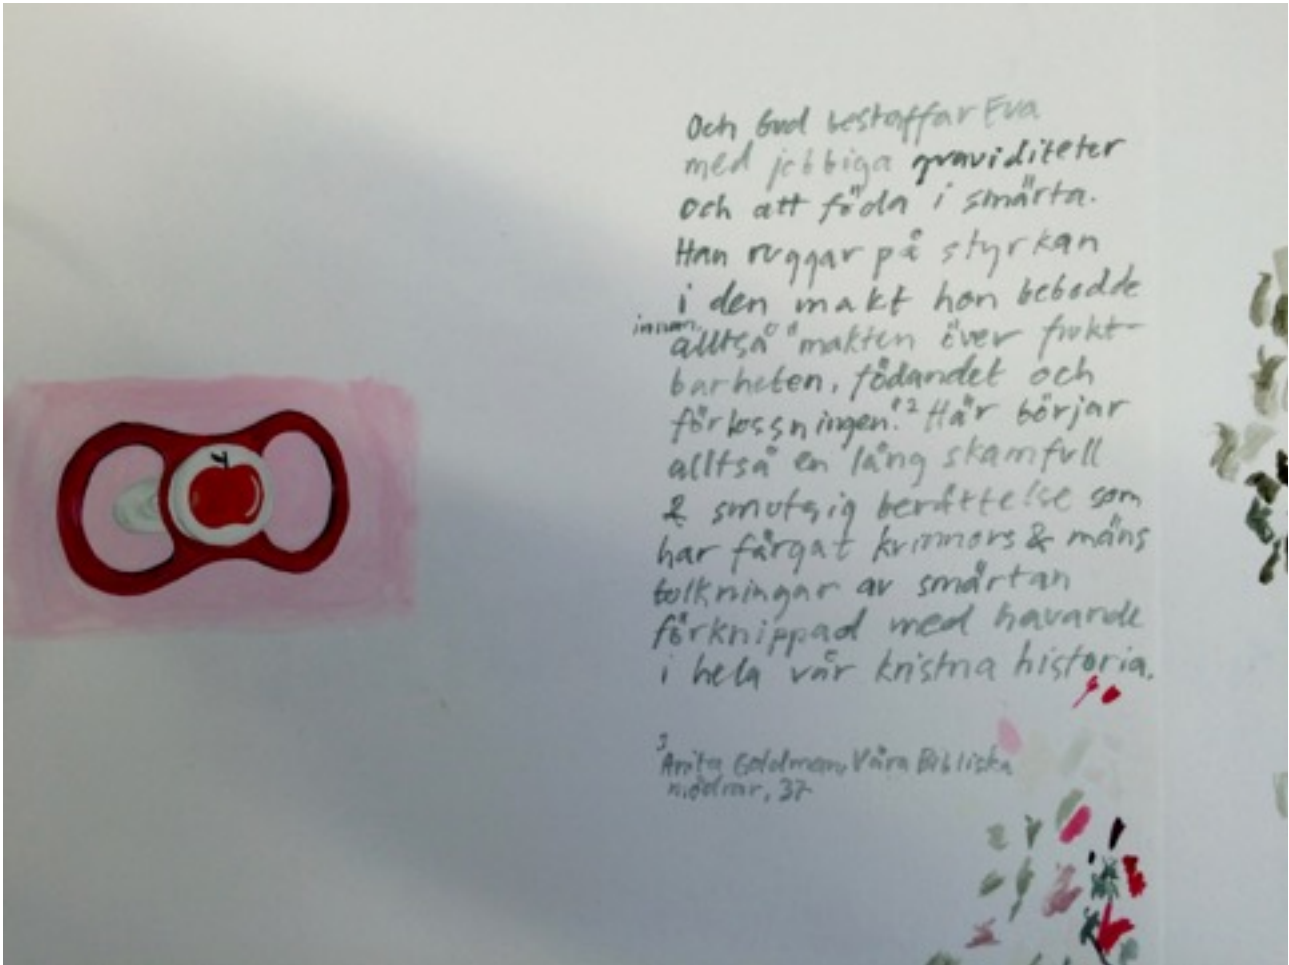 Och Gud bestaffar Eva
med jobbiga graviditeter
och att föda i smärta.
Han ruggar på styrkan
i den makt hon bebodde
innan,
alltså "makten över frukt-
barheten, födandet och
förlossningen."2 Här börjar
alltså en lång skamfull
& smutsig berättelse som
har färgat kvinnors & mäns
tolkningar av smärtan
förknippad med havande
i hela vår kristna historia.
Anita Goldman, Våra Bibliska
mödrar, 37